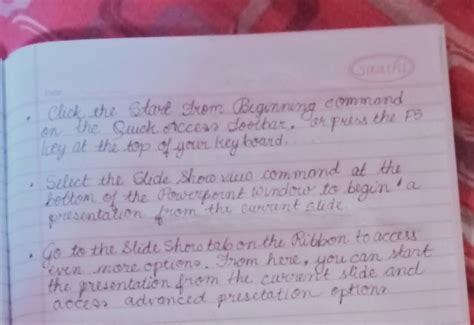 Saathi
Date
• Click the Start From Beginning command
on the Quick Access Toolbar, or press the F5
key at the top of your keyboard.
• Select the Slide Show view command at the
bottom of the PowerPoint window to begin a
presentation from the current slide.
• Go to the Slide Show tab on the Ribbon to access
even more options. From here, you can start
the presentation from the current slide and
access advanced presetation options